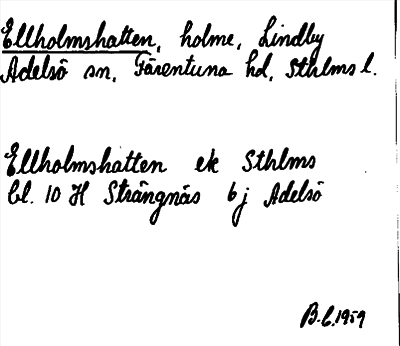 Ellholmshatten, holme, Lindby
Adelsö sn, Färentuna hd, Sthlms l.
Ellholmshatten ek Sthlms
bl. 10 H Strängnäs b j Adelsö
B.C. 1959